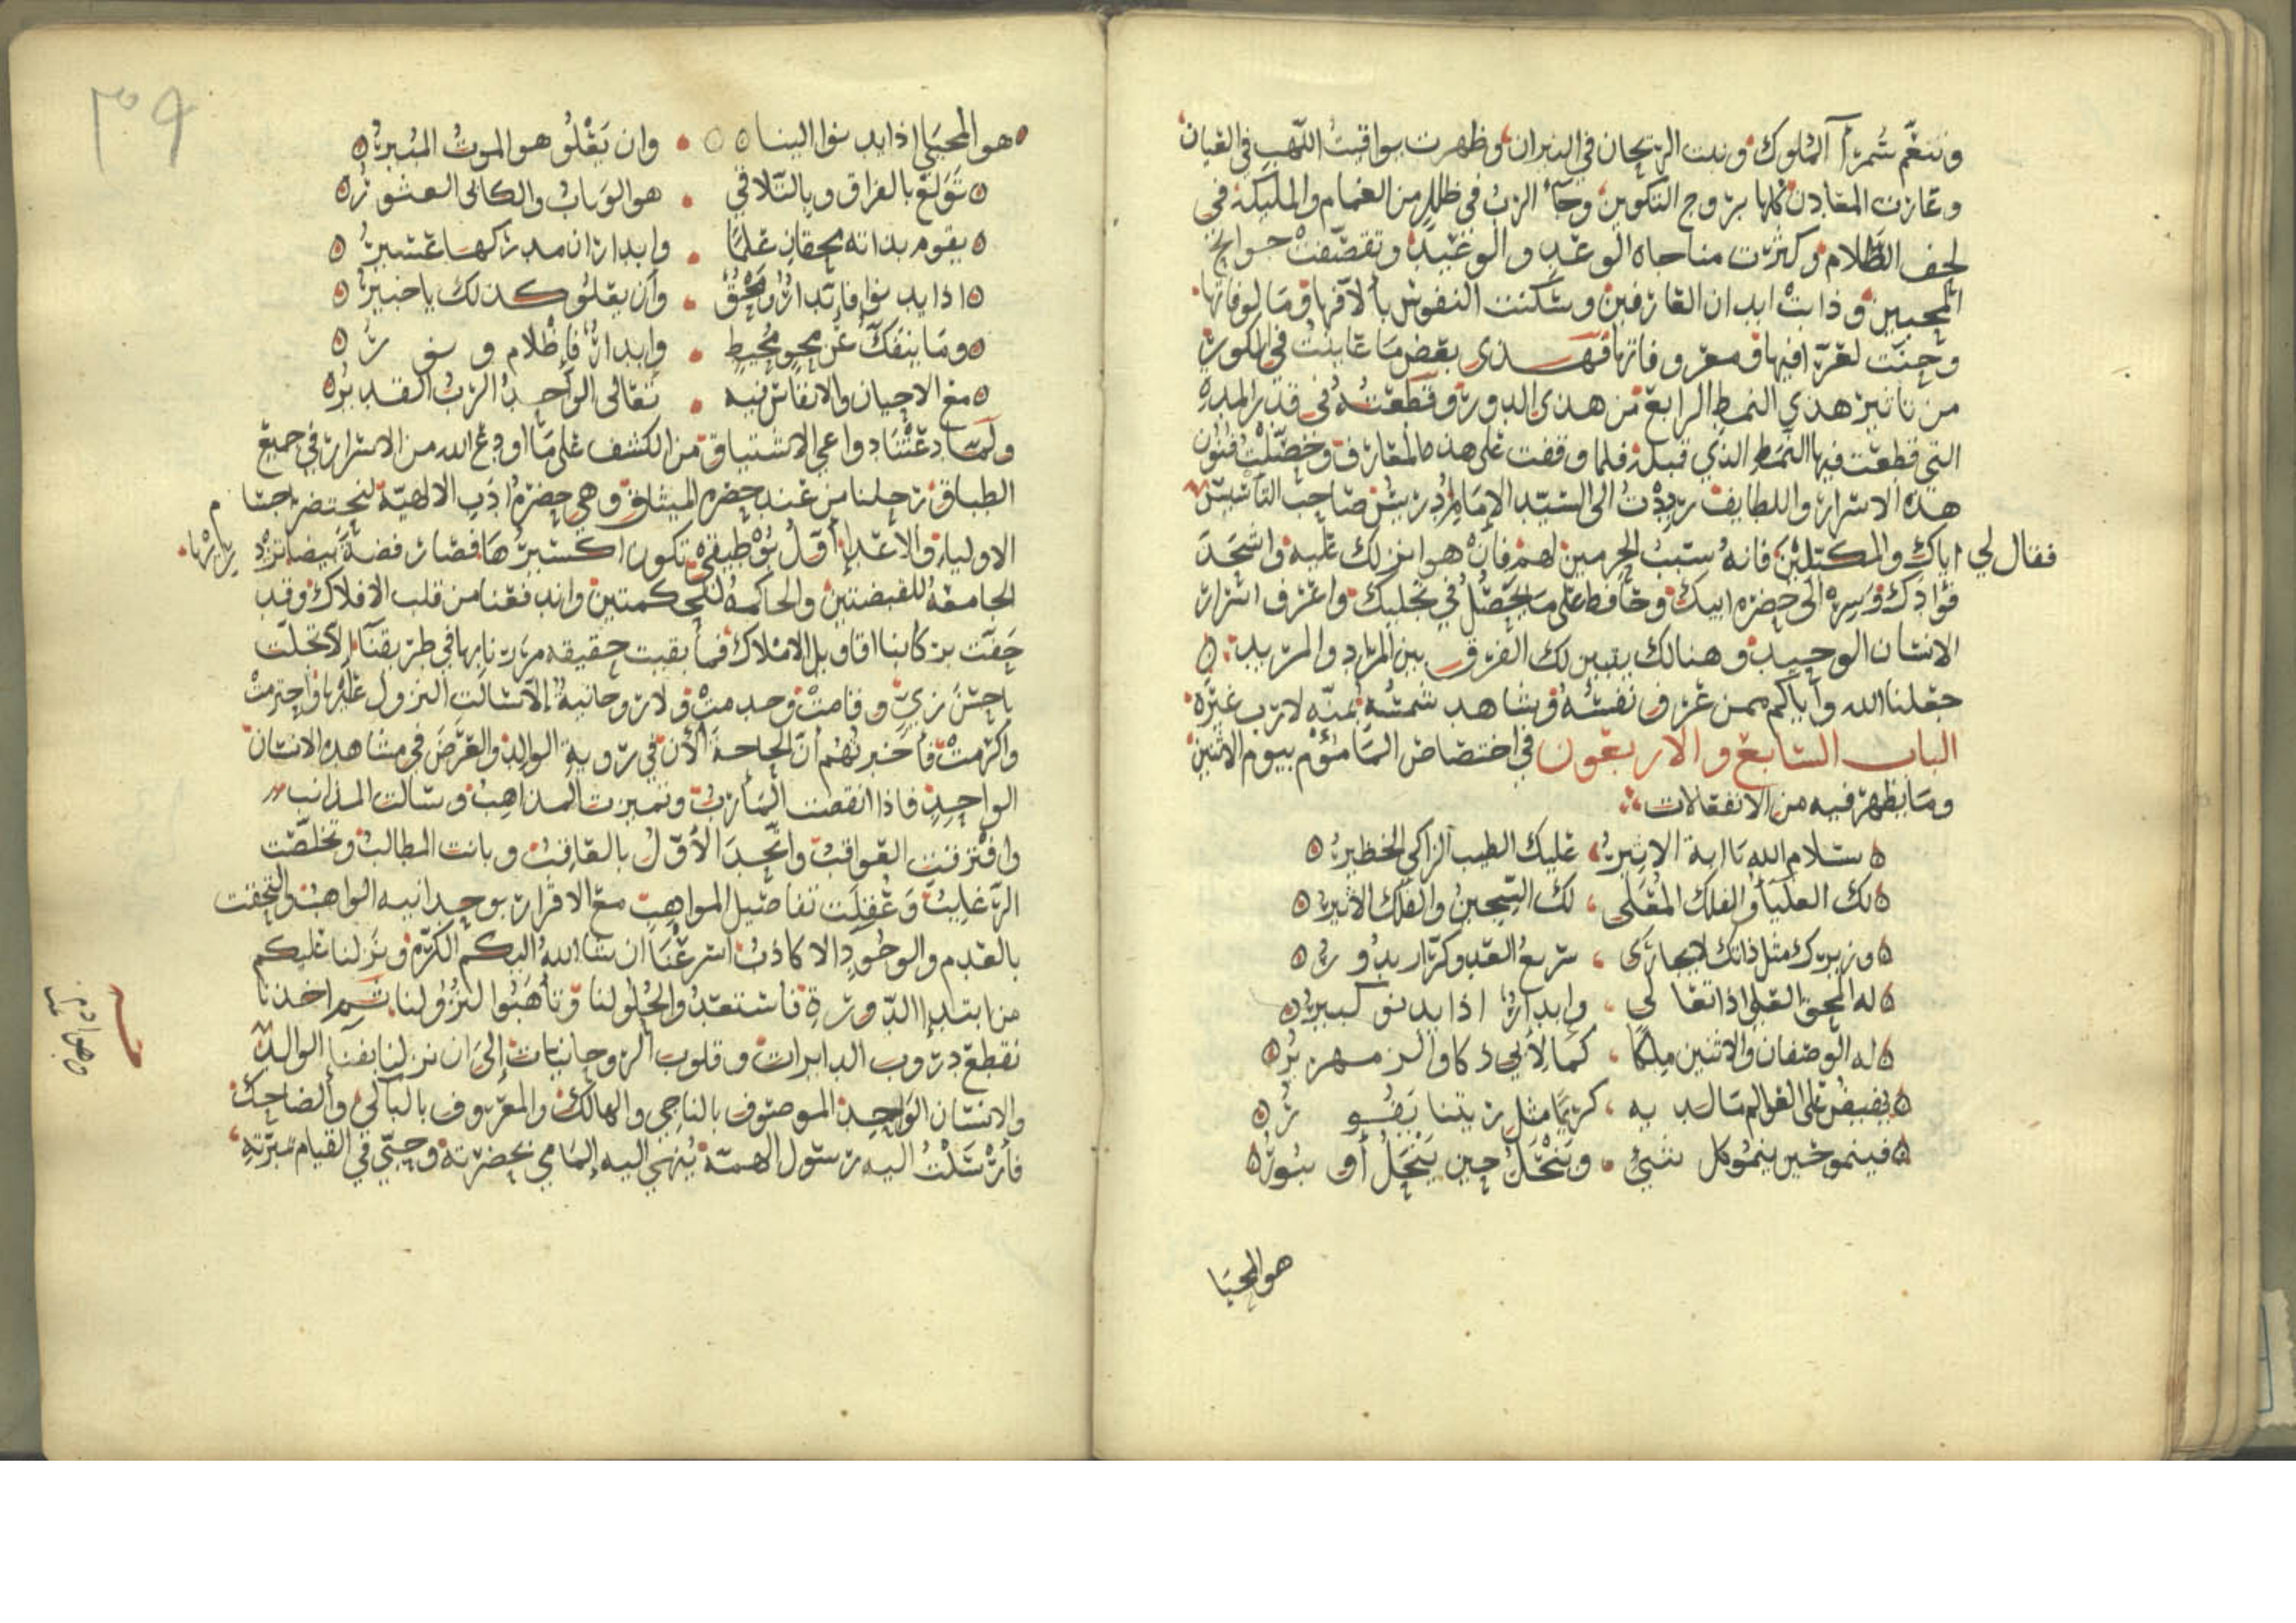 وتنعّم سُمَراء الملوك وبنت الريحان في النيران وظهرت يواقيتُ اللهب في القيان
وغازت المعادن كلها بروح التكوين وجاء الربُ في ظلل من الغمام والمليكة في
لحف الظلام وكثرت مناجاه الوعد والوعيد وتقصّفت حوايج
المحبين وذابت ابدان العارفين وسكنت النفوس بألآفها ومالوفاتها
وحنت لغرّافيها ومعروفاتها فهذى بعض ما عاينت في الكور
من تاثير هذي النمط الرابع من هذى الدورة وقطعته في قدر المده
التي قطعت فيها النمط الذي قبله فلما وقفت على هذه المعارف وحصّلت فنون
هذه الاسرار واللطايف رددتُ الى السيّد الامام ادريس صاحب التأسيس
فقال لي اياك والمكتلين فانه سبب الحرمين لهم فانه هوا نزلك عليه واشحد
فؤادك وسره الى حضره ابيك وحافظ على ما يحصّل في تجليك واعرف اسرار
الانسان الوحيد وهنالك يتبين لك الفرق بين المراد والمريد
جعلنا الله واياكم ممن عرف نفسه وشاهد شمسه بمنّه لارب غيره
الباب السابع والاربعون في اختصاص المأموم بيوم الاثنين
وما يظهر فيه من الانفعالات
سلام الله يا ابة الاثير عليك الطيب الزاكي الخطير
لك العليا والفلك المعلى لك السجين والفلك الاثير
وزيرك مثل ذاتك لايجازى سريع العدو كرّار يدور
له المحق العلى اذا تعالى وابدار اذا يدنو كبير
له الوصفان والاثنين ملكا كما لأبي ذكا والزمهرير
يفيض على العوالم ما لديه كريما مثل زيتنا يفور
فينمو حين ينمو كل شيء وينحل حين ينحل او يبور
هو المحيا
هو المحيا اذا يدنوا الينا وان يعلُو هو الموت المبير
تولع بالفراق وبالتلاقي هو الوهاب والكالى العشور
يقوم بذاته محقان علما وابداران مدركها عسير
اذا يدنوا فابدار ومحق وان يعلو كذلك يا خبير
وما ينفك عن محو محيط وابدار فإظلام ونور
مع الاحيان والانفاس فيه تعالى الواحد الرب القدير
ولما دعتنا دواعي الاشتياق من الكشف على ما اودع الله من الاسرار في جميع
الطباق رحلنا من عند حضره الميثاق وهي حضرة ادب الالهية لنحتضر احتا
الاولياء والاعداء اول بوطيقه تكون اكسيرها فصار فضة بيضا
الجامعة للقبضتين والحاكمه للحكمتين واندفعنا من قلب الافلاك وقد
حفت بركابنا اقاويل الاملاك فما بقيت حقيقه مررنا بها في طريقنا الا تجلت
باحسن زي وقامت وخدمت ولا روحانية الا سالت النزول عليها واحترمت
واكرمت فأخبرتهم أن الحاجة الآن في روية الوالد والغرض في مشاهده الانسان
الواحد فاذا انقضت المأرب وتميزت المذاهب وسالت المذانب
وافترقت العواقب واتحد الأول بالعاقب وبانت المطالب وتخلصت
الرغايب وغفلت تفاصيل المواهب مع الاقرار بوحدانيه الواهب والتحقت
بالقدم والوجود الاكاذب اسرعنا ان شاء الله اليكم الكرّة ونزلنا عليكم
من ابتداء الدورة فاستعدوا لحلولنا وتأهبوا لنزولنا ثم اخذنا
نقطع دروب الدايرات وقلوب الروحانيات الى ان نزلنا بفنا الوالد
والانسان الواحد الموصوف بالناجي والهالك والمعروف بالباكي والضاحك
فأرسلت اليه رسول الهمّة يُنهي اليه إلمامي بحضرته وحبي في القيام بمبرّته